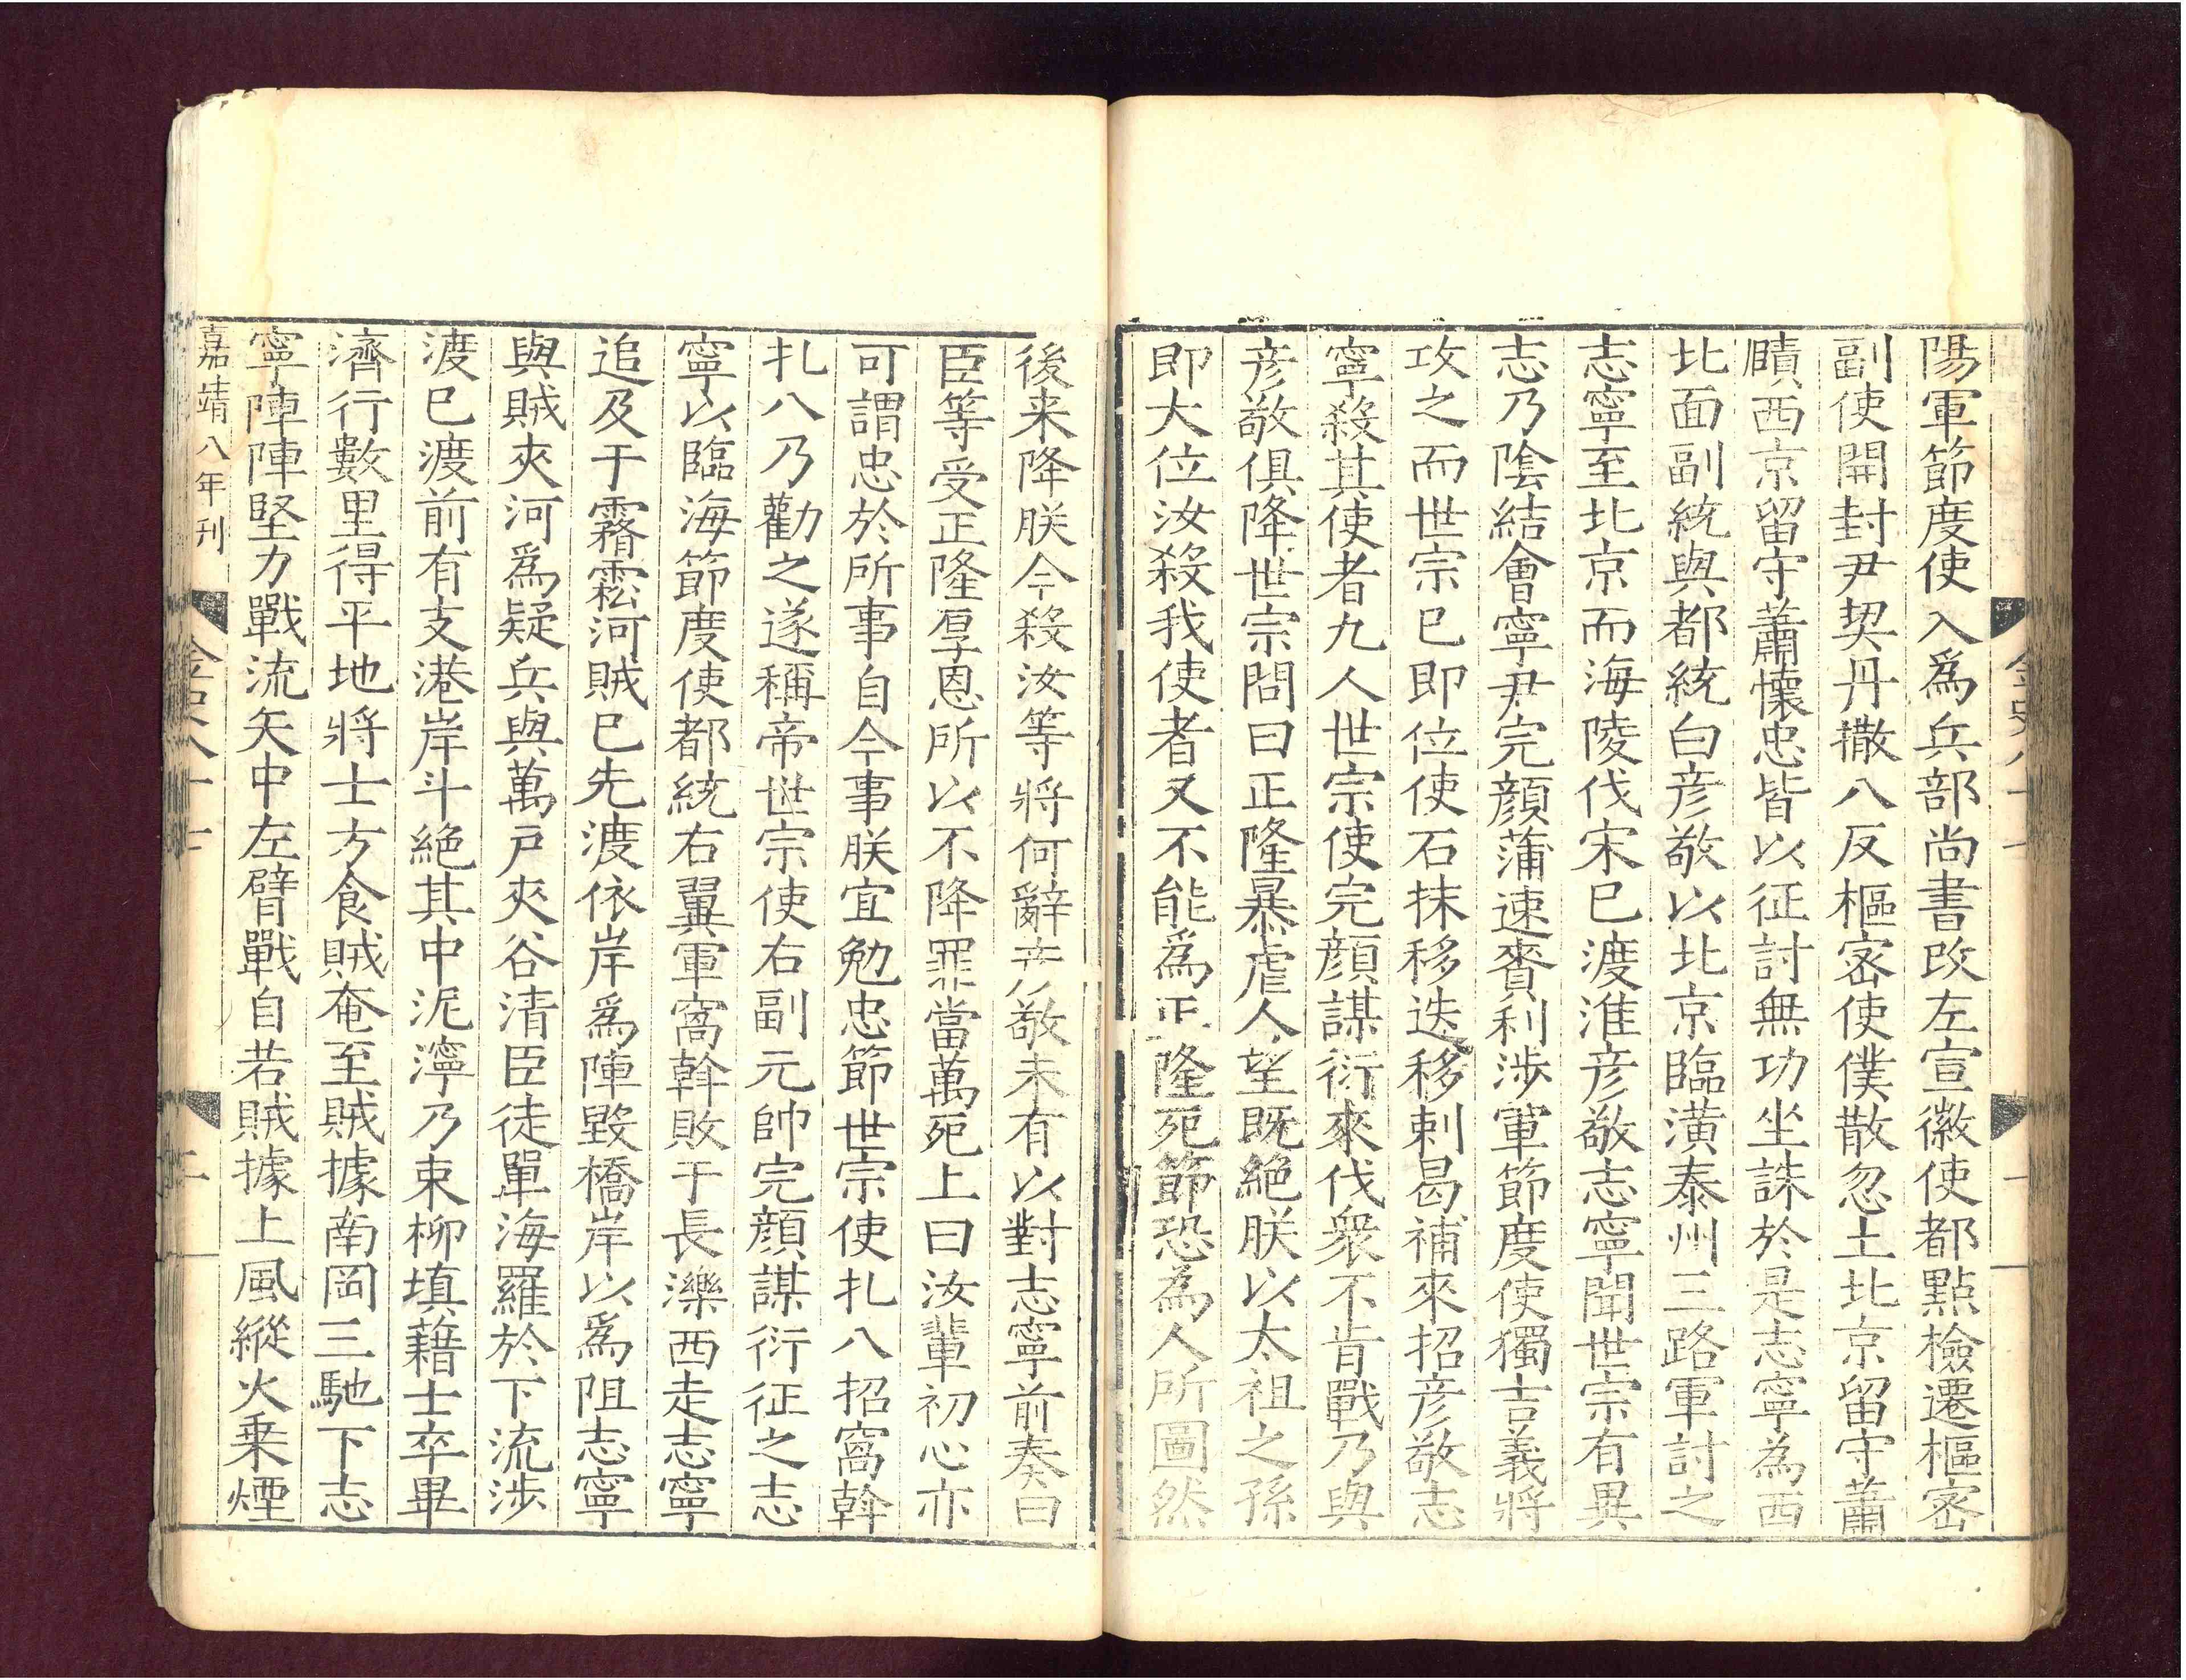 陽軍節度使入爲兵部尚書改左宣徽使都點檢遷樞密
副使開封尹契丹撒八反樞密使僕散忽土北京留守蕭
賾西京留守蕭懷忠皆以征討無功坐誅於是志寧為西
北面副統與都統白彦敬以北京臨潢泰州三路軍討之
志寧至北京而海陵伐宋已渡淮彦敬志寧聞世宗有異
志乃陰結會寧尹完顔蒲速賚利涉軍節度使獨吉義將
攻之而世宗已即位使石抹移迭移剌曷補來招彦敬志
寧殺其使者九人世宗使完顔謀衍來伐衆不肯戰乃與
彦敬俱降世宗問曰正隆暴虐人望既絶朕以太祖之孫
即大位汝殺我使者又不能爲正隆死節恐為人所圖然
後来降朕今殺汝等將何辭彦敬未有以對志寧前奏曰
臣等受正隆厚恩所以不降罪當萬死上曰汝輩初心亦
可謂忠於所事自今事朕宜勉忠節世宗使扎八招窩斡
扎八乃勸之遂稱帝世宗使右副元帥完顔謀衍征之志
寧以臨海節度使都統右翼軍窩斡敗于長濼西走志寧
追及于霿𩃭河賊已先渡依岸爲陣毀橋岸以爲阻志寧
與賊夾河爲疑兵與萬戶夾谷清臣徒單海羅於下流渉
渡已渡前有支港岸斗絶其中泥濘乃束柳填藉士卒畢
濟行數里得平地將士方食賊奄至賊據南岡三馳下志
寧陣陣堅力戰流矢中左臂戰自若賊據上風縱火乗煙
嘉靖八年刊